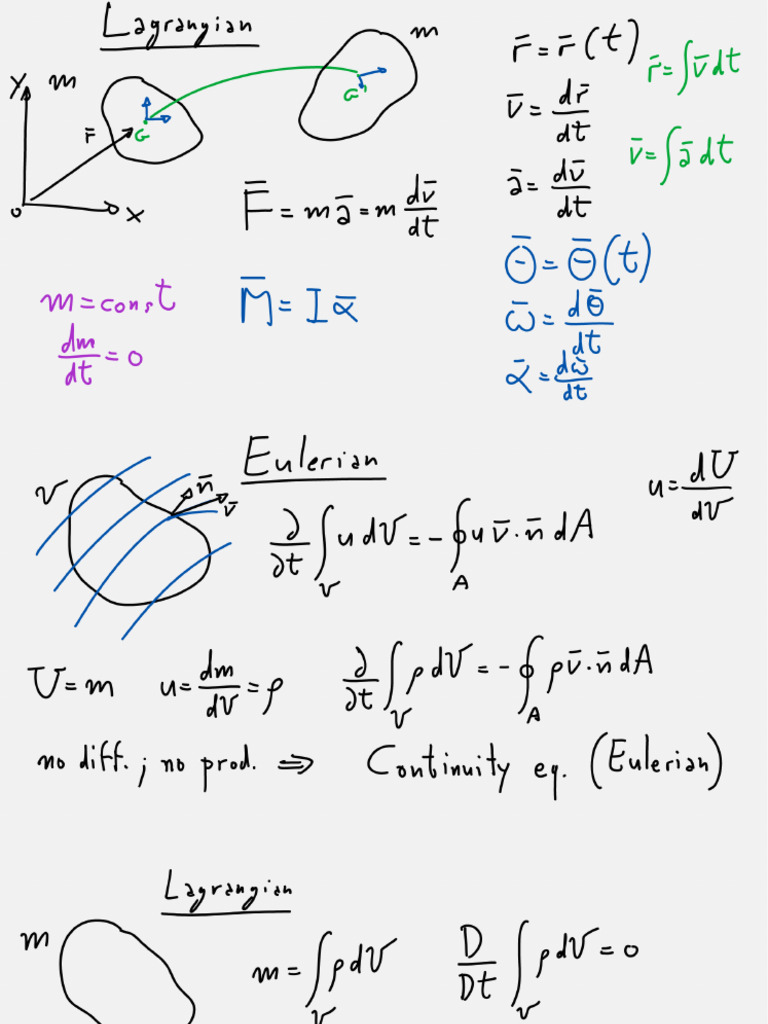 Lagrangian
m
Y m
r̄ G G'
O X
r̄ = r̄(t) r̄ = ∫ v̄ dt
v̄ = dr̄/dt v̄ = ∫ ā dt
ā = dv̄/dt
F̄ = mā = m dv̄/dt
m = const M̄ = Iᾱ
dm/dt = 0
Θ̄ = Θ̄(t)
ω̄ = dΘ̄/dt
ᾱ = dω̄/dt
Eulerian
V n̄ v̄
u = dU/dV
∂/∂t ∫_V u dV = - ∮_A u v̄·n̄ dA
U = m u = dm/dV = ρ ∂/∂t ∫_V ρ dV = - ∮_A ρ v̄·n̄ dA
no diff. ; no prod. ⇒ Continuity eq. (Eulerian)
Lagrangian
m m = ∫_V ρ dV D/Dt ∫_V ρ dV = 0